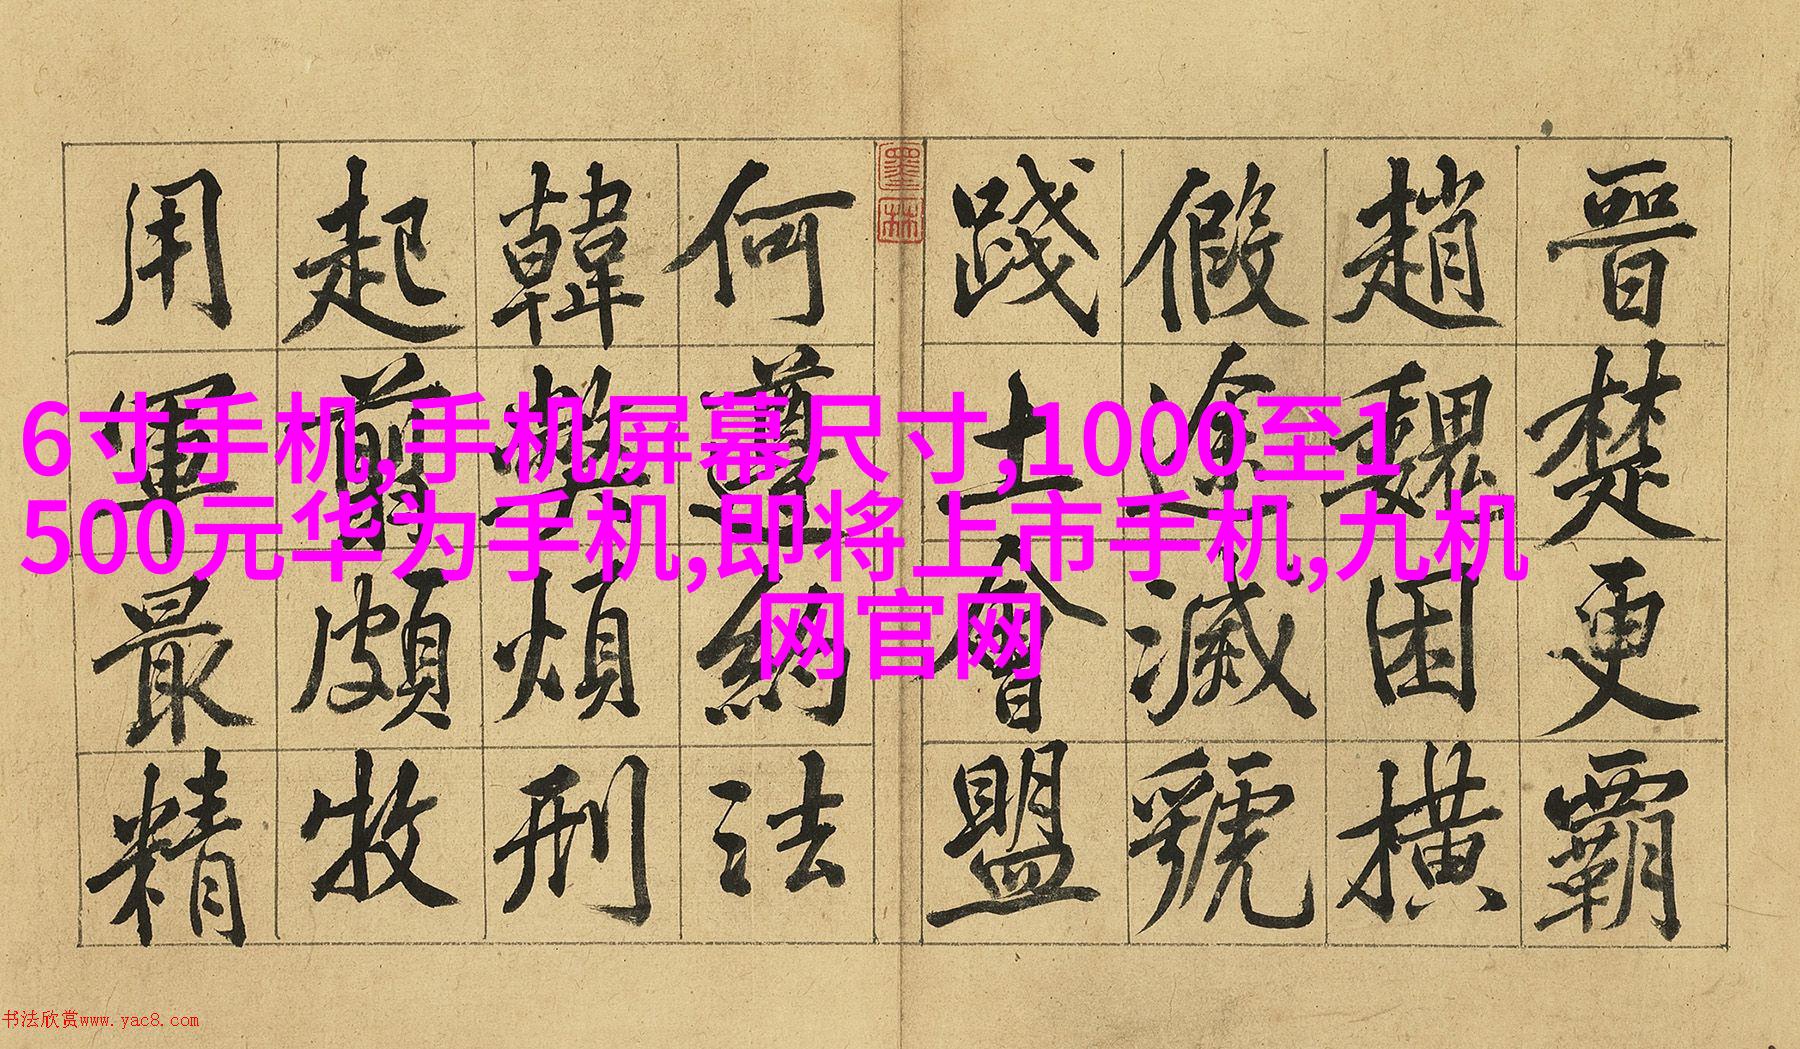 晉楚更霸
趙魏困橫
假途滅虢
踐土會盟
何遵約法
韓弊煩刑
起翦頗牧
用軍最精
墨林
6寸手机,手机屏幕尺寸,1000至1
500元华为手机,即将上市手机,九机
网官网
书法欣赏www.yac8.com